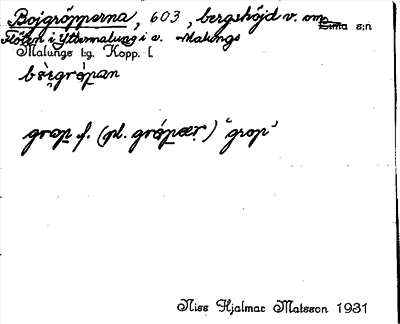 Bojgröpperna, 603, bergshöjd v. om
Flöten i Yttermalung i v. Malungs Lima s:n
Malungs tg. Kopp. l.
grop f. (pl. grópær) 'grop'
Niss Hjalmar Matsson 1931